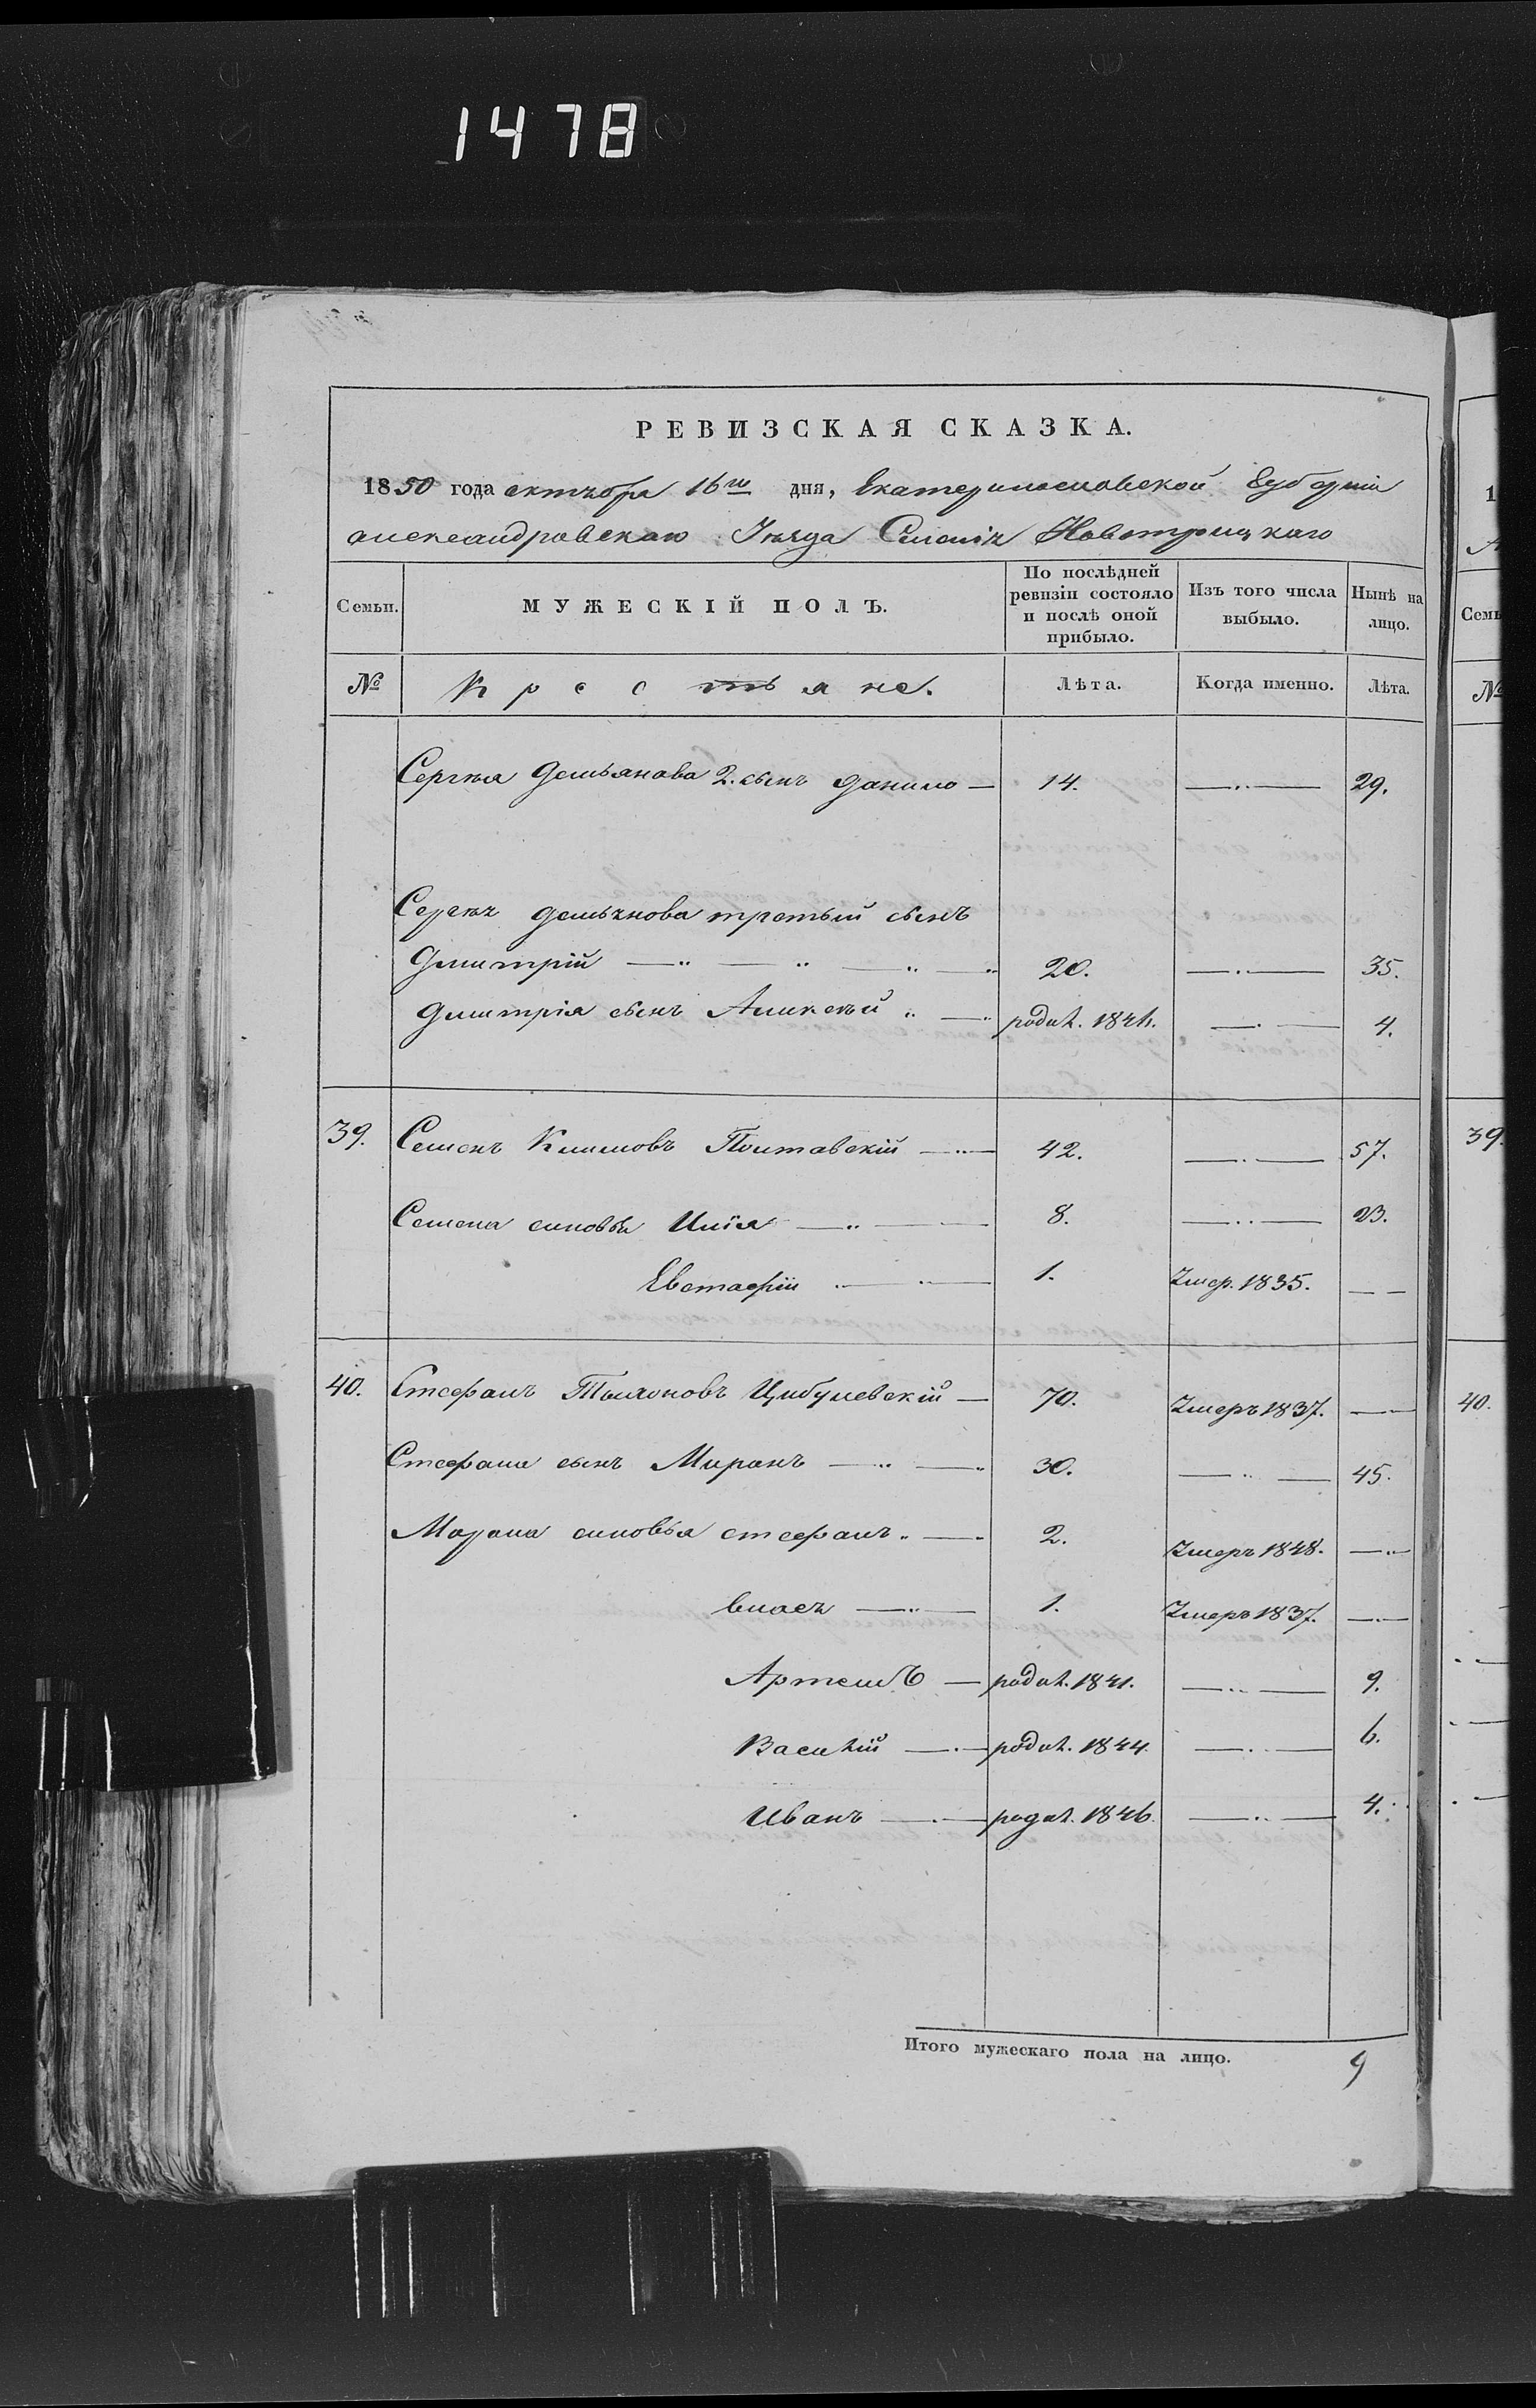 1478
РЕВИЗСКАЯ СКАЗКА.
1850 года октября 16го дня, Екатеринославской Губерніи
александровскаго Уезда Селенія Новотроицкаго
Семьи. МУЖЕСКІЙ ПОЛЪ. По послѣдней ревизіи состояло и послѣ оной прибыло. Изъ того числа выбыло. Нынѣ на лицо.
№ Крестьяне. Лѣта. Когда именно. Лѣта.
Сергея Демьянова 2. сынъ Данило — 14. —..— 29.
Сергея демьянова третьий сынъ
Дмитрій —..— ..—..— 20. —..— 35.
Дмитрія сынъ Аликсѣй „ —.. родил. 1846. —.— 4.
39. Семенъ Климовъ Полтавскій —..— 42. —..— 57.
Семена синовья Илія —..— 8. —..— 23.
Евстафіи ..—..— 1. Умер. 1835. — —
40. Стефанъ Тимоновъ Цибулевскій — 70. Умеръ 1837. —..—
Стефана сынъ Миронъ —..—.. 30. —..— 45.
Мирона синовья стефанъ. —.. 2. Умеръ 1848. —..—
власъ —..— 1. Умеръ 1837. —..—
Артемъ — родил. 1841. —..— 9.
Василій —.— родил. 1844. —..— 6.
Иванъ —.— родил. 1846. —..— 4.
Итого мужескаго пола на лицо. 9
39.
40.